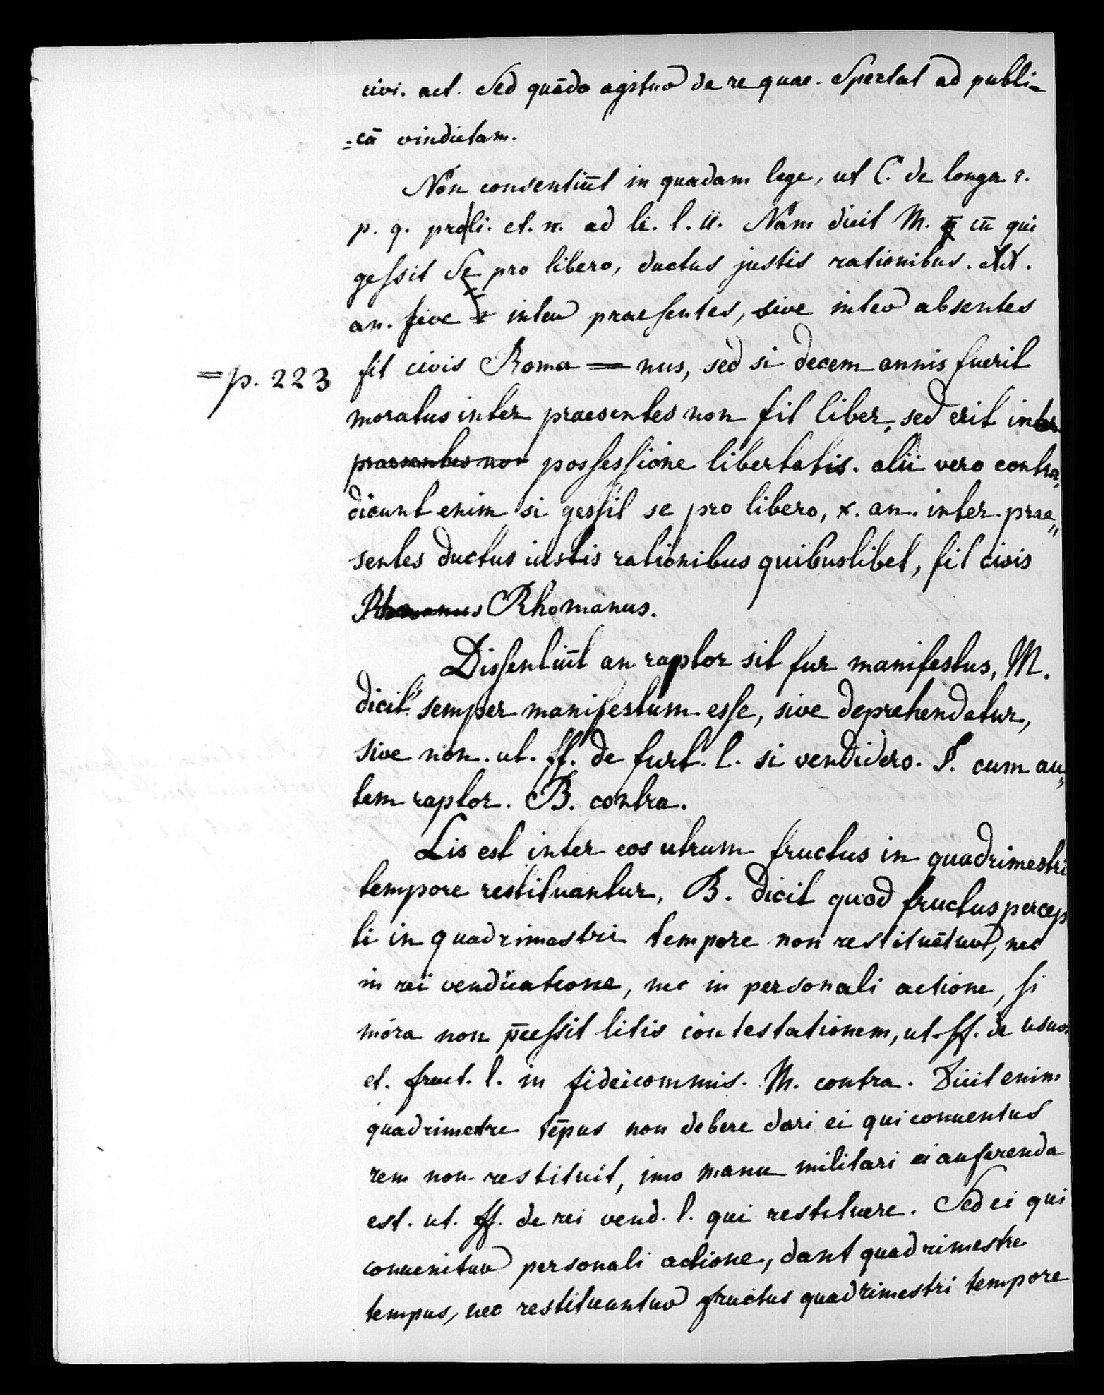 civi. act. Sed quādo agitur de re quae. Spectat ad publi-
=cā vindictam.
Non consentiūt in quadam lege, ut C. de longa r.
p. q. pro li. et. n. ad li. l. ii. Nam dicit M. cū qui
gessit Se pro libero, ductus justis rationibus. XX.
an. sive inter praesentes, sive inter absentes
=p. 223 fit civis Roma = nus, sed si decem annis fuerit
moratus inter praesentes non fit liber, sed erit in
praesentes non possessione libertatis. alii vero contra,
dicunt enim si gessit se pro libero, x. an. inter prae,,
sentes ductus iustis rationibus quibuslibet, fit civis
Rhomanus Rhomanus.
Dissentiūt an raptor sit fur manifestus, M.
dicit semper manifestum esse, sive deprehendatur,
sive non. ut. ff. de furt. l. si vendidero. §. cum au,,
tem raptor. B. contra.
Lis est inter eos utrum fructus in quadrimestri
tempore restituantur, B. dicit quod fructus percep
ti in quadrimestri tempore non restituētur, nec
in rei vendicatione, nec in personali actione, si
mora non p̄cessit litis contestationem, ut. ff. de usur
et. fruct. l. in fideicommis. M. contra. Dicit enim
quadrimetre tēpus non debere dari ei qui conuentus
rem non restituit, imo manu militari ei auferenda
est. ut. ff. de rei vend. l. qui restituere. Sed ei qui
conuenitur personali actione, dant quadrimestre
tempus, nec restituuntur fructus quadrimestri tempore